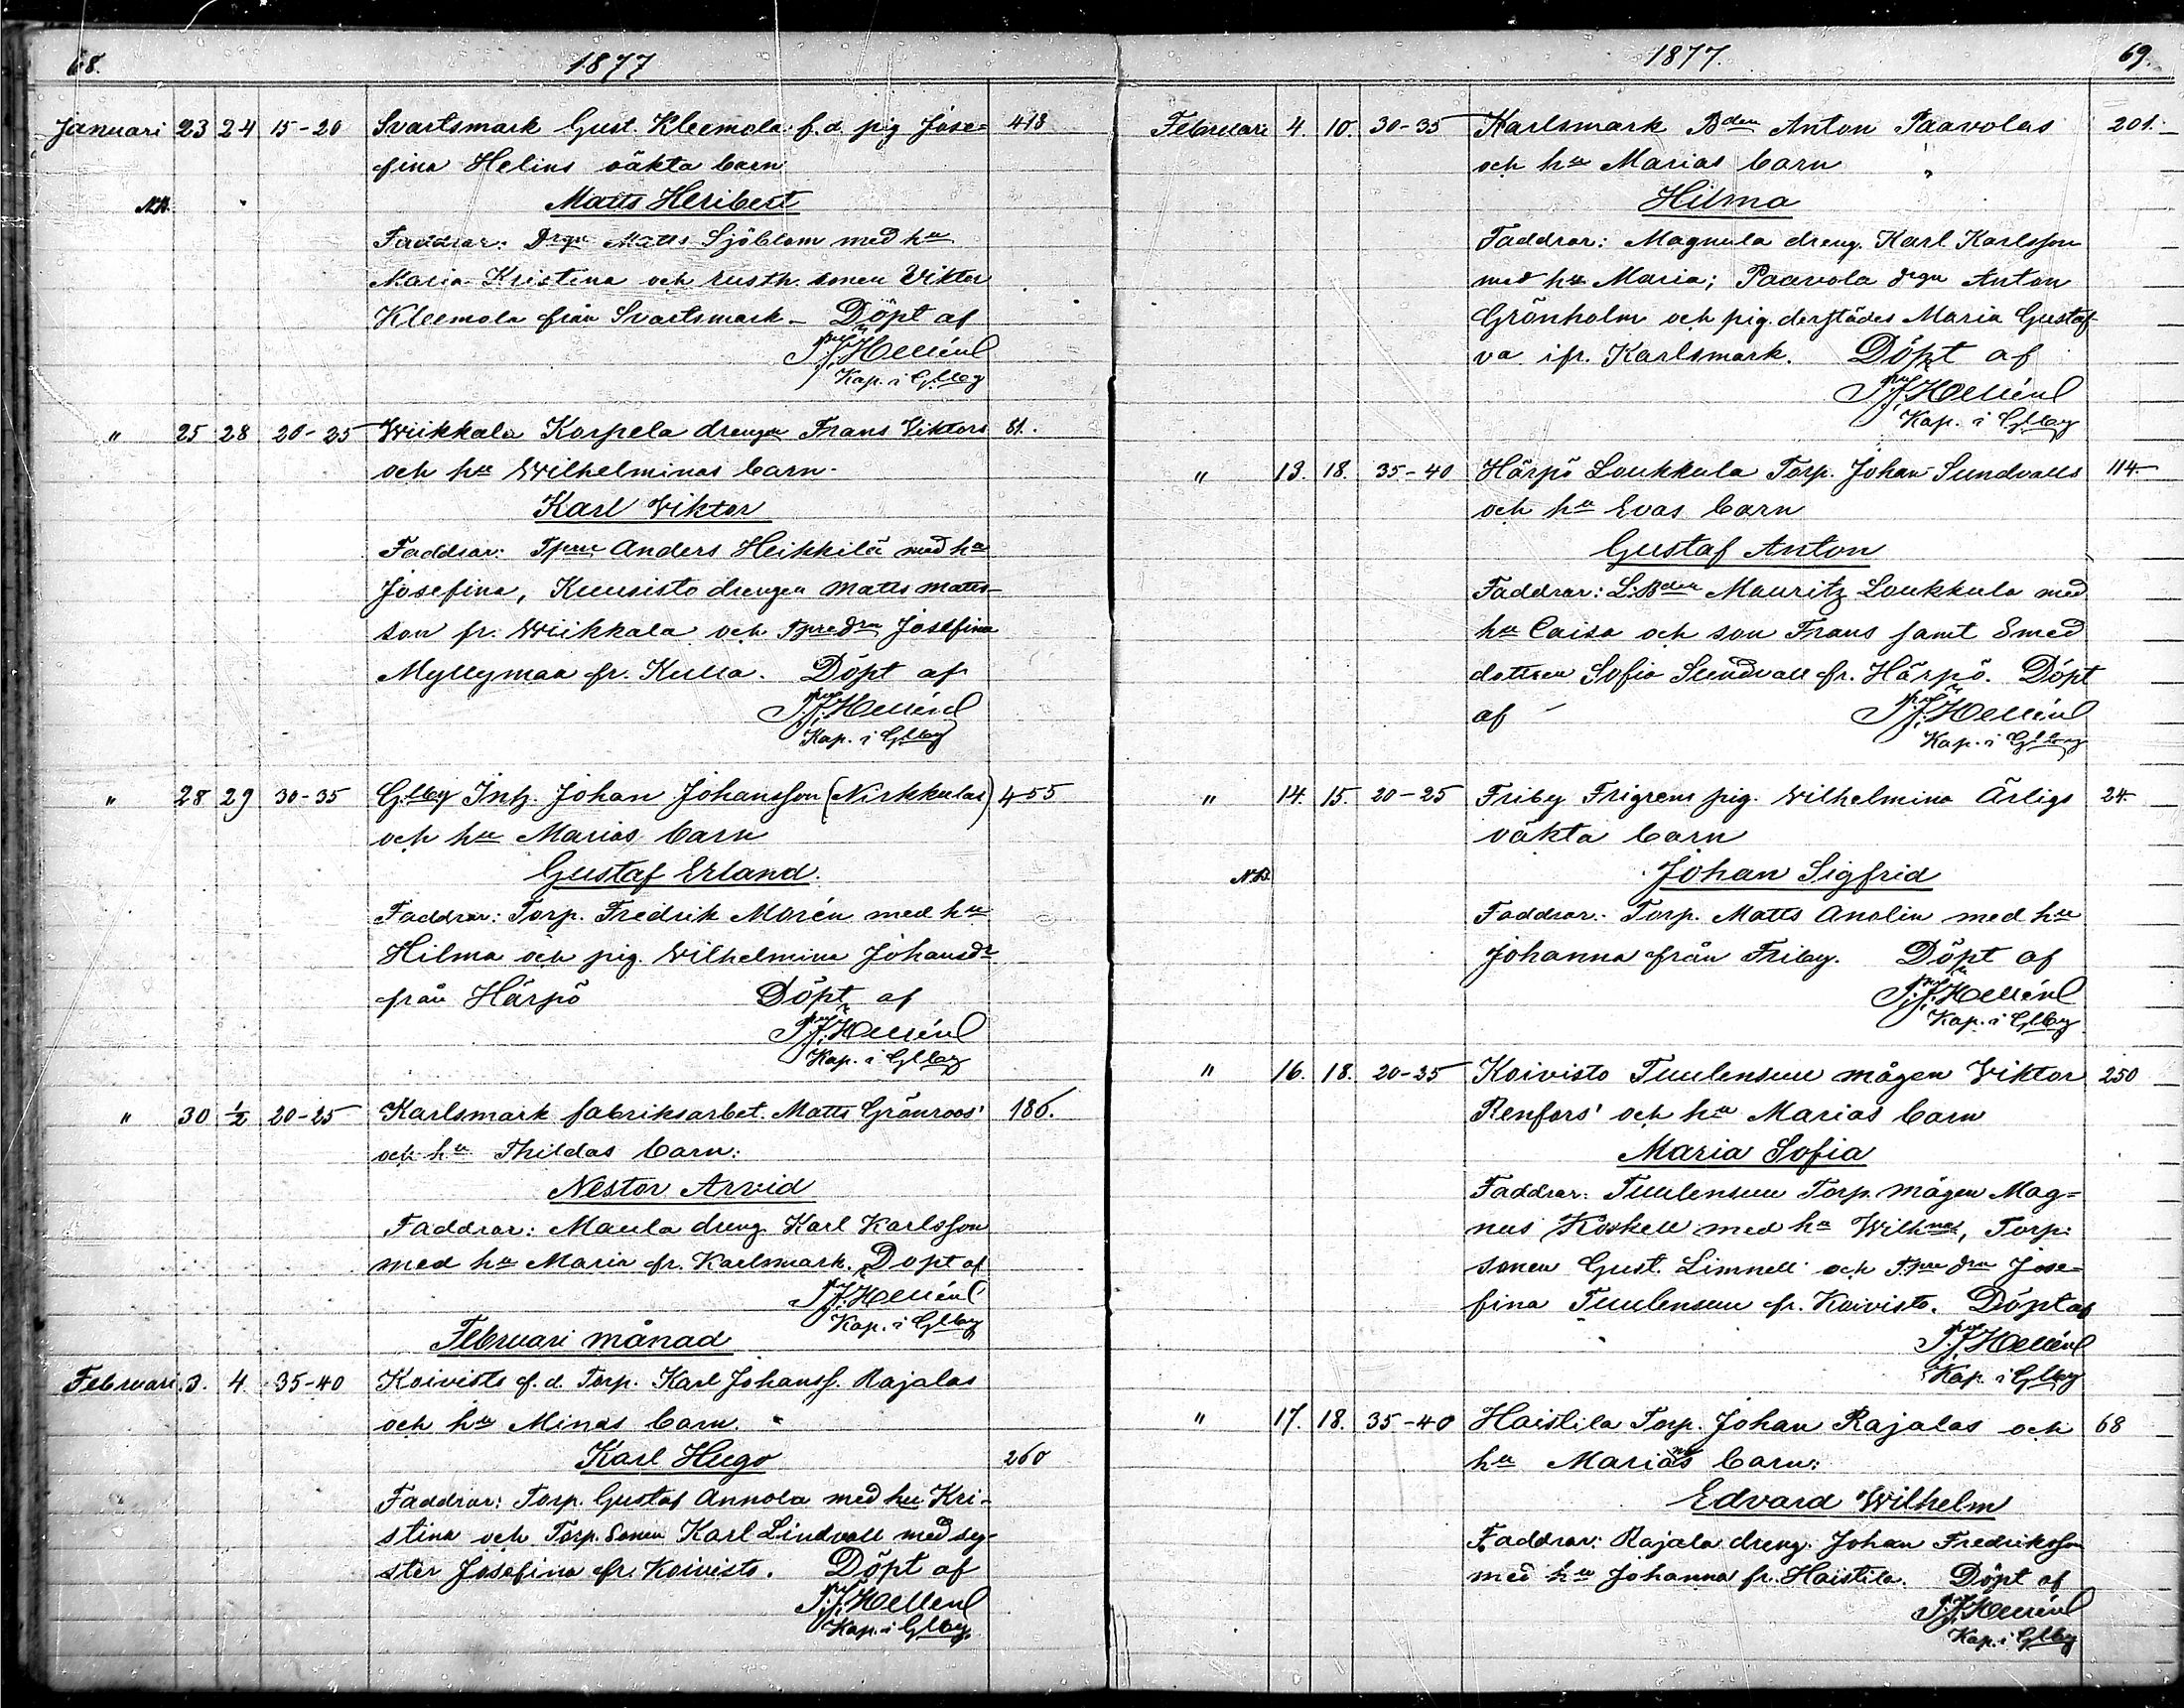 68. 1877
Januari 23 24 15-20 Svartsmark Gust. Kleemola f. d. pig Jose= 418
fina Helins oäkta barn
Matts Heribert
Faddrar: Drgn Matts Sjöblom med hu
Maria Kristina och rusth. sonen Viktor
Kleemola från Svartsmark - Döpt af
Kap. i Glby
" 25 28 20-25 Wiikkala Korpela drengen Frans Viktors 81.
och hu Wilhelminas barn.
Karl Viktor
Faddrar: Tparn Anders Heikkilä med hu
Josefina, Kuusisto drengen Matts Matts-
son fr. Wiikkala och Tpredrn Josefina
Myllymaa fr. Kulla. Döpt af
Kap. i Glby
" 28 29 30-35 Glby Inh. Johan Johansson (Nirkkulas) 455
och hu Marias barn
Gustaf Erland.
Faddrar: Torp. Fredrik Morén med hu
Hilma och pig Wilhelmina Johansdr
från Härpö Döpt af
Kap. i Glby
" 30 1/2 20-25 Karlsmark fabriksarbet. Matts Grönroos' 186.
och hu Thildas barn:
Nestor Arvid
Faddrar: Maula dreng Karl Karlsson
med hu Maria fr. Karlsmark. Döpt af
Kap. i Glby
Februari månad
Februari 3. 4. 35-40 Koivisto f. d. Torp. Karl Johanss. Rajalas
och hu Minas barn.
Karl Hugo 260
Faddrar: Torp. Gustaf Annola med hu Kri-
stina och Torp. Sonen Karl Lindvall med sy-
ster Josefina fr. Koivisto. Döpt af
Kap. i Glby
1877. 69.
Februari 4. 10. 30-35 Karlsmark Bden Anton Paavolas 201.
och hu Marias barn
Hilma
Faddrar: Magnula dreng. Karl Karlsson
med hu Maria; Paavola drgn Anton
Grönholm och pig. derstädes Maria Gustaf-
va ifr. Karlsmark. Döpt af
Kap. i Glby
" 13. 18. 35-40 Härpö Loukkula Torp. Johan Sundvalls 114.
och hu Evas barn
Gustaf Anton
Faddrar: L.Bden Mauritz Loukkula med
hu Caisa och son Frans samt Smed
dottren Sofia Sundvall fr. Härpö. Döpt
af
Kap. i Glby
" 14. 15. 20-25 Friby Frigrens pig. Wilhelmina Ärligs 24.
oäkta barn
N.B. Johan Sigfrid
Faddrar: Torp. Matts Anolin med hu
Johanna från Friby. Döpt af
Kap. i Glby
" 16. 18. 20-25 Koivisto Tuulensuu mågen Viktor 250
Renfors' och hu Marias barn
Maria Sofia
Faddrar: Tuulensuu Torp. mågen Mag=
nus Koskell med hu Wilhna, Torp.
sonen Gust. Limnell och Tpredrn Jose=
fina Tuulensuu fr. Koivisto. Döpt af
Kap. i Glby
" 17. 18. 35-40 Haistila Torp. Johan Rajalas och 68
hu Marias barn:
Edvard Wilhelm
Faddrar: Rajala dreng. Johan Fredriksson
med hu Johanna fr. Haistila. Döpt af
Kap. i Glby